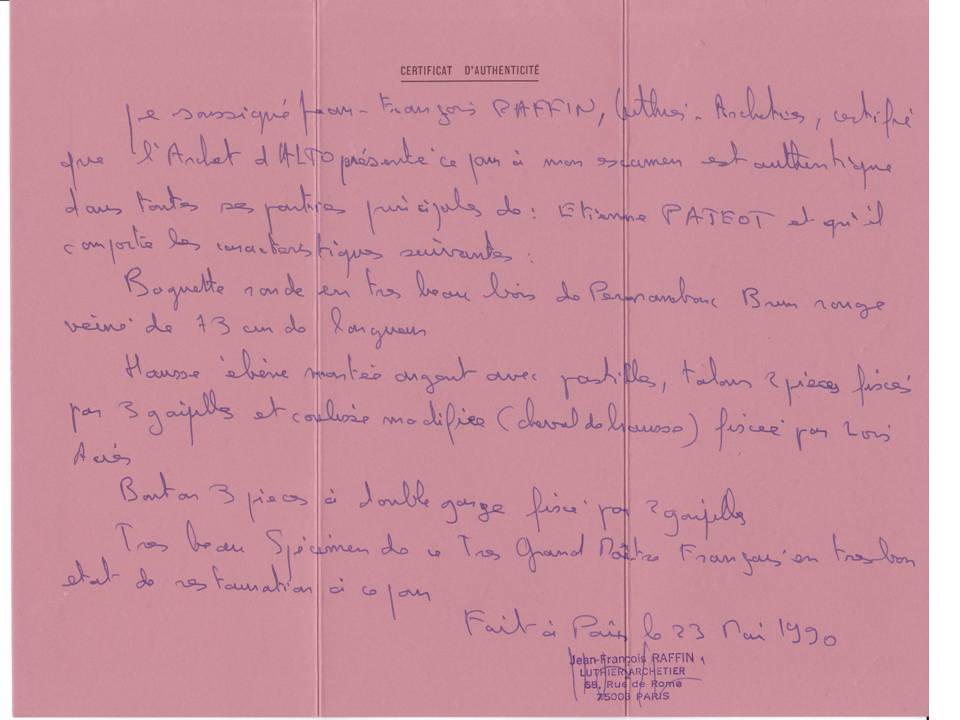 CERTIFICAT D'AUTHENTICITÉ
Je soussigné Jean-François RAFFIN, Luthier-Archetier, certifie
que l'Archet d'ALTO présenté ce jour à mon examen est authentique
dans toutes ses parties principales de : Etienne PAJEOT et qu'il
comporte les caracteristiques suivantes :
Baguette ronde en tres beau bois de Pernambouc Brun rouge
veiné de 73 cm de longueur
Hausse ébène montée argent avec pastilles, talons 2 pièces fixées
par 3 goupilles et coulisse modifiée (cheval de hausse) fixée par 2 vis
Bouton 3 pieces à double gorge fixé par 2 goupilles
Tres beau Spécimen de ce Tres Grand Maître Français en tres bon
etat de restauration à ce jour
Fait à Paris le 23 Mai 1990
Jean-François RAFFIN
LUTHIER ARCHETIER
68, Rue de Rome
75008 PARIS